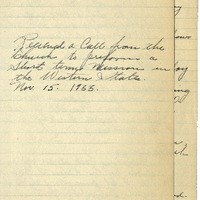 Received a Call from the
Church to preform a
Short term Mission in
the Western States.
Nov 15. 1933.